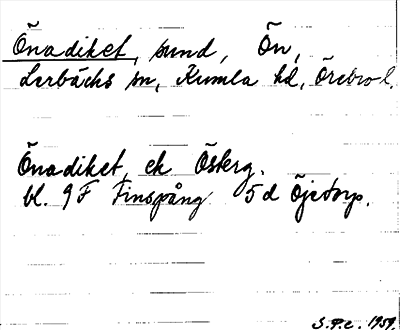 Önadiket, sund, Ön,
Lerbäcks sn, Kumla hd, Örebro l.
Önadiket, ek Österg.
bl. 9 F Finspång 5 d Öjetorp.
S.P.c. 1959.